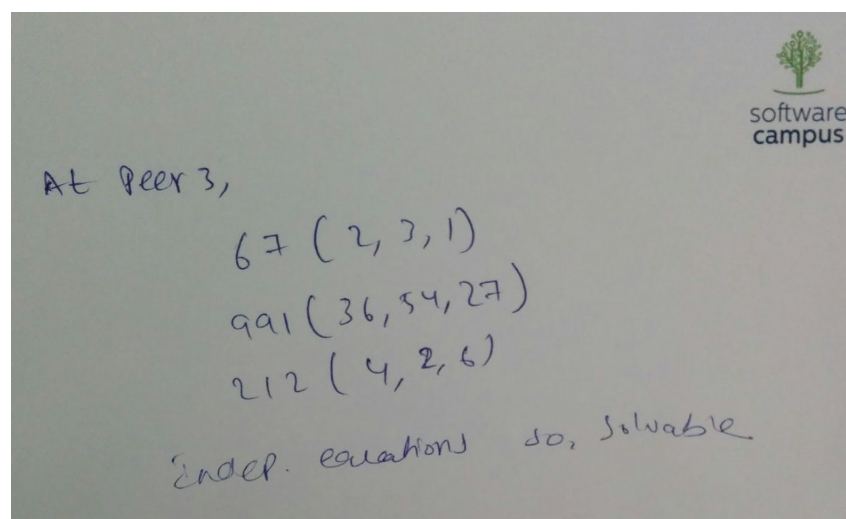 software
campus
At Peer 3,
67 (2, 3, 1)
991 (36, 54, 27)
212 (4, 2, 6)
indep. equations so, solvable